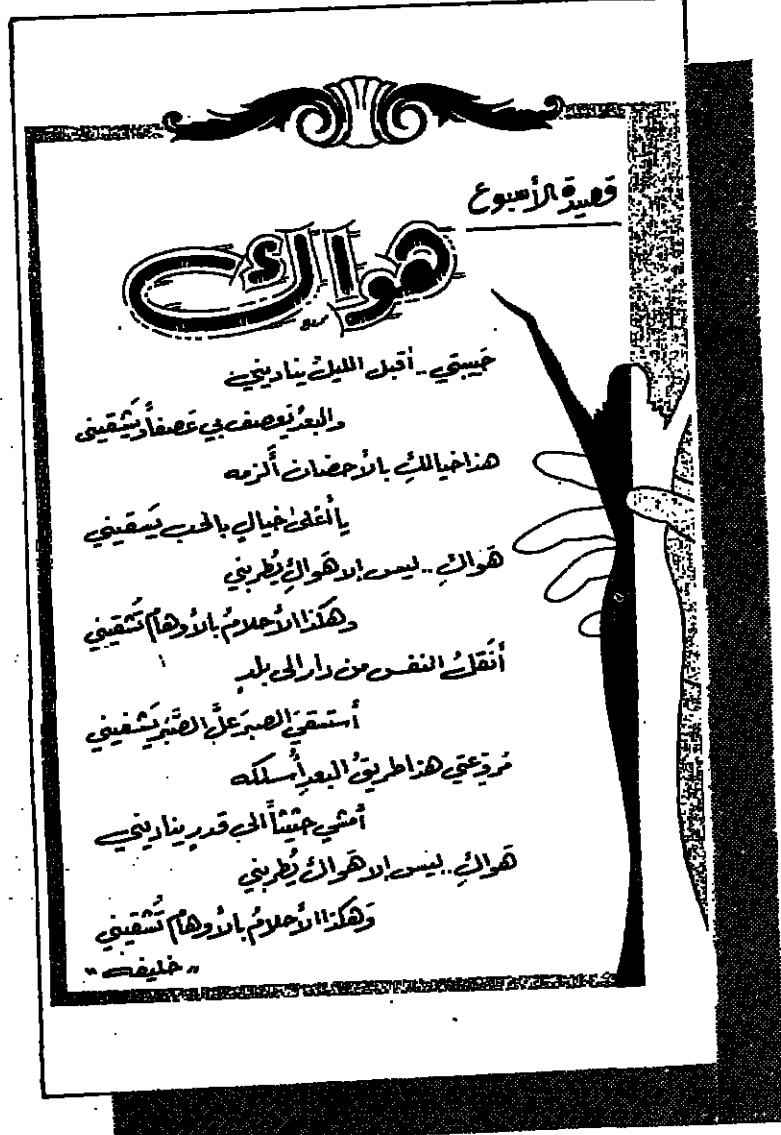 قصيدة الأسبوع
هواك
حبيبتي .. أقبل الليلُ يناديني
والبعدُ يعصف بي عَصفاً ويَشقيني
هذا خيالكِ بالأحضان أَلزمه
يا أغلىٰ خيالٍ بالحب يَسقيني
هَواكِ .. ليس إلا هَواكِ يُطربني
وهكذا الأحلامُ بالأوهامُ تُشقيني
أنقلُ النفس من دار الى بلدٍ
أستسقيَ الصبرَ علَّ الصَّبرَ يَشفيني
مُروّعتي هذا طريقُ البعدِ أُسلكه
أمشي حثيثاً الى قدرٍ يناديني
هَواكِ .. ليس إلا هَواكِ يُطربني
وَهكذا الأحلامُ بالأوهامُ تُشقيني
" خليفه "